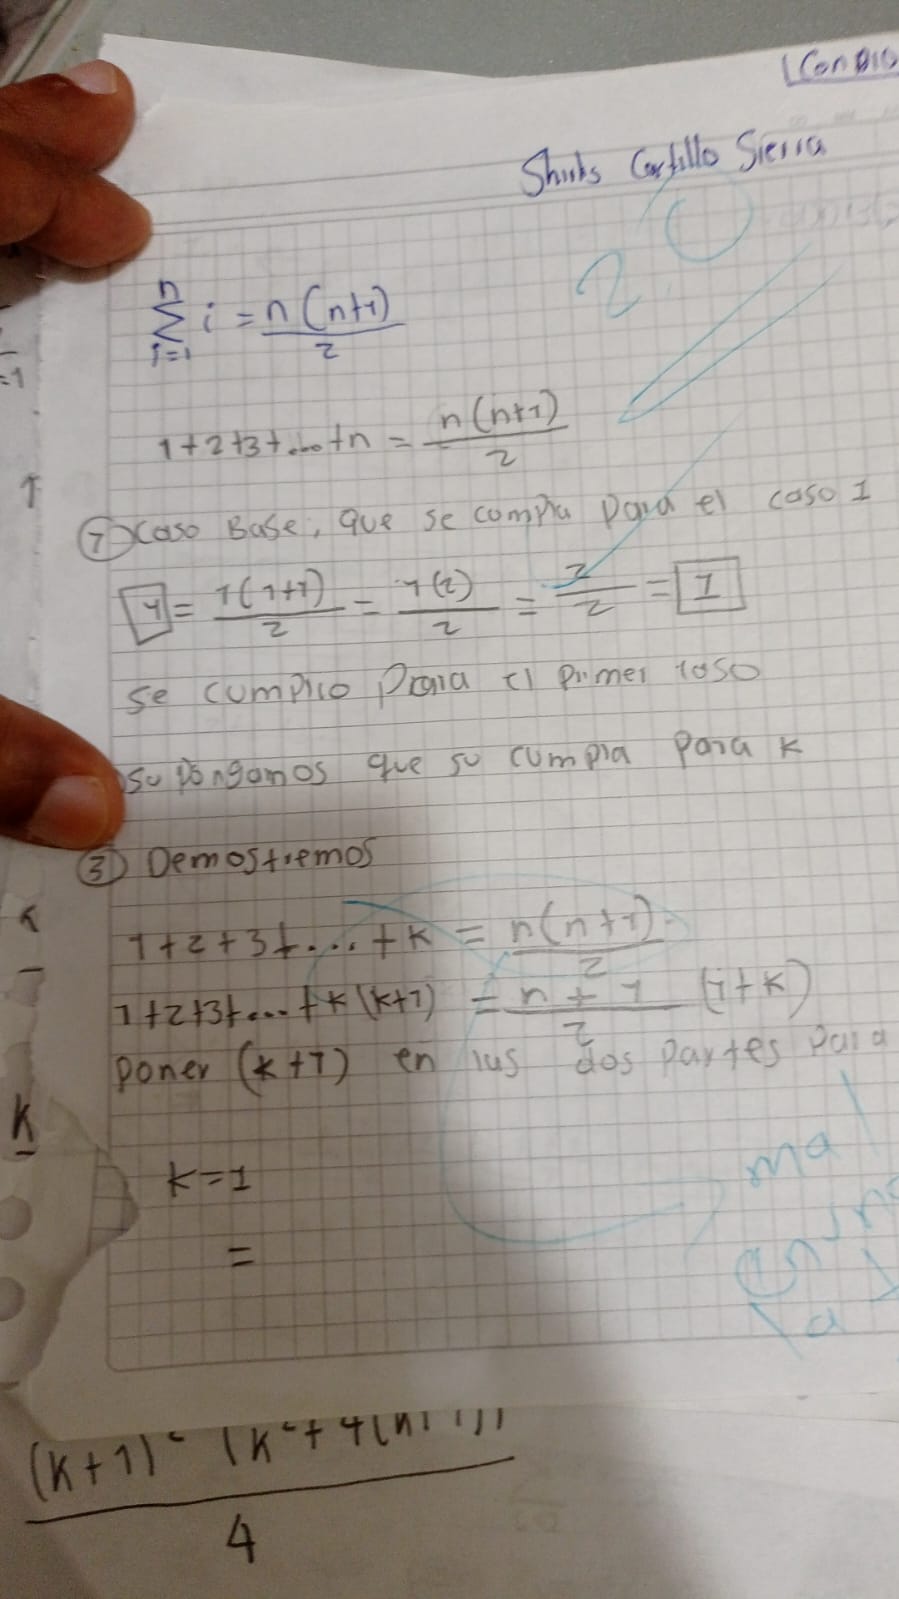 Castillo Sierra
2.0
n
∑ i = n(n+1)
i=1 2
1+2+3+...+n = n(n+1)
2
① Caso Base, que se compla para el caso 1
1 = 1(1+1) = 1(2) = 2 = 1
2 2 2
se cumplio para el primer caso
supongamos que se cumpla para k
③ Demostremos
1+2+3+...+k = n(n+1)
2
1+2+3+...+k(k+1) = n+1 (1+k)
2
poner (k+1) en las dos partes para
mal
k=1
=
la
k
(k+1)² (k²+4(
4